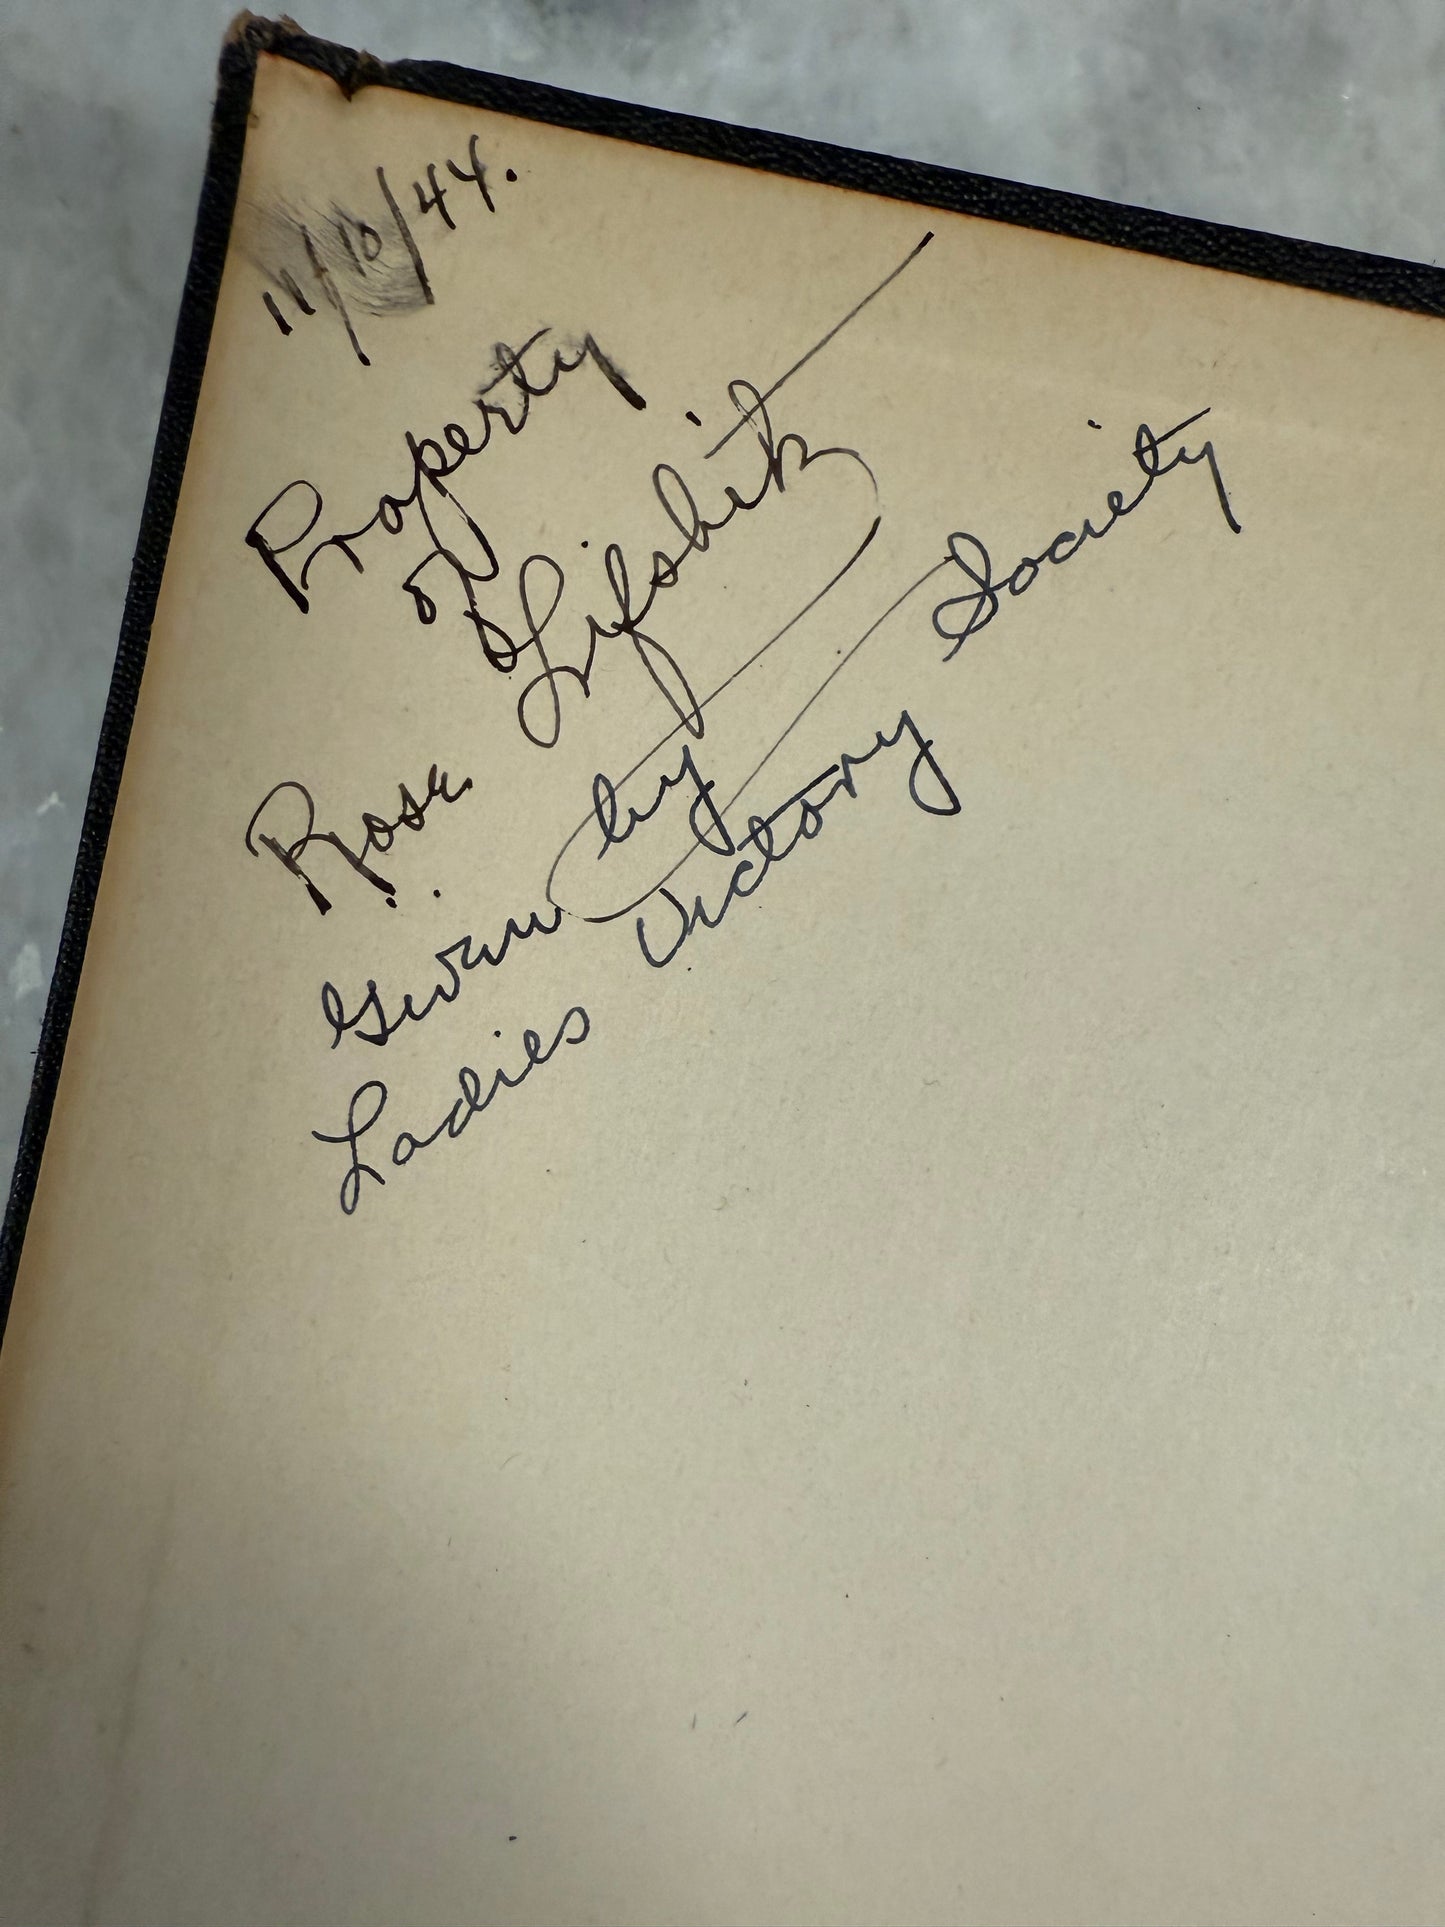 11/10/44.
Property
of
Rose Lifshitz
Given by
Ladies Victory Society